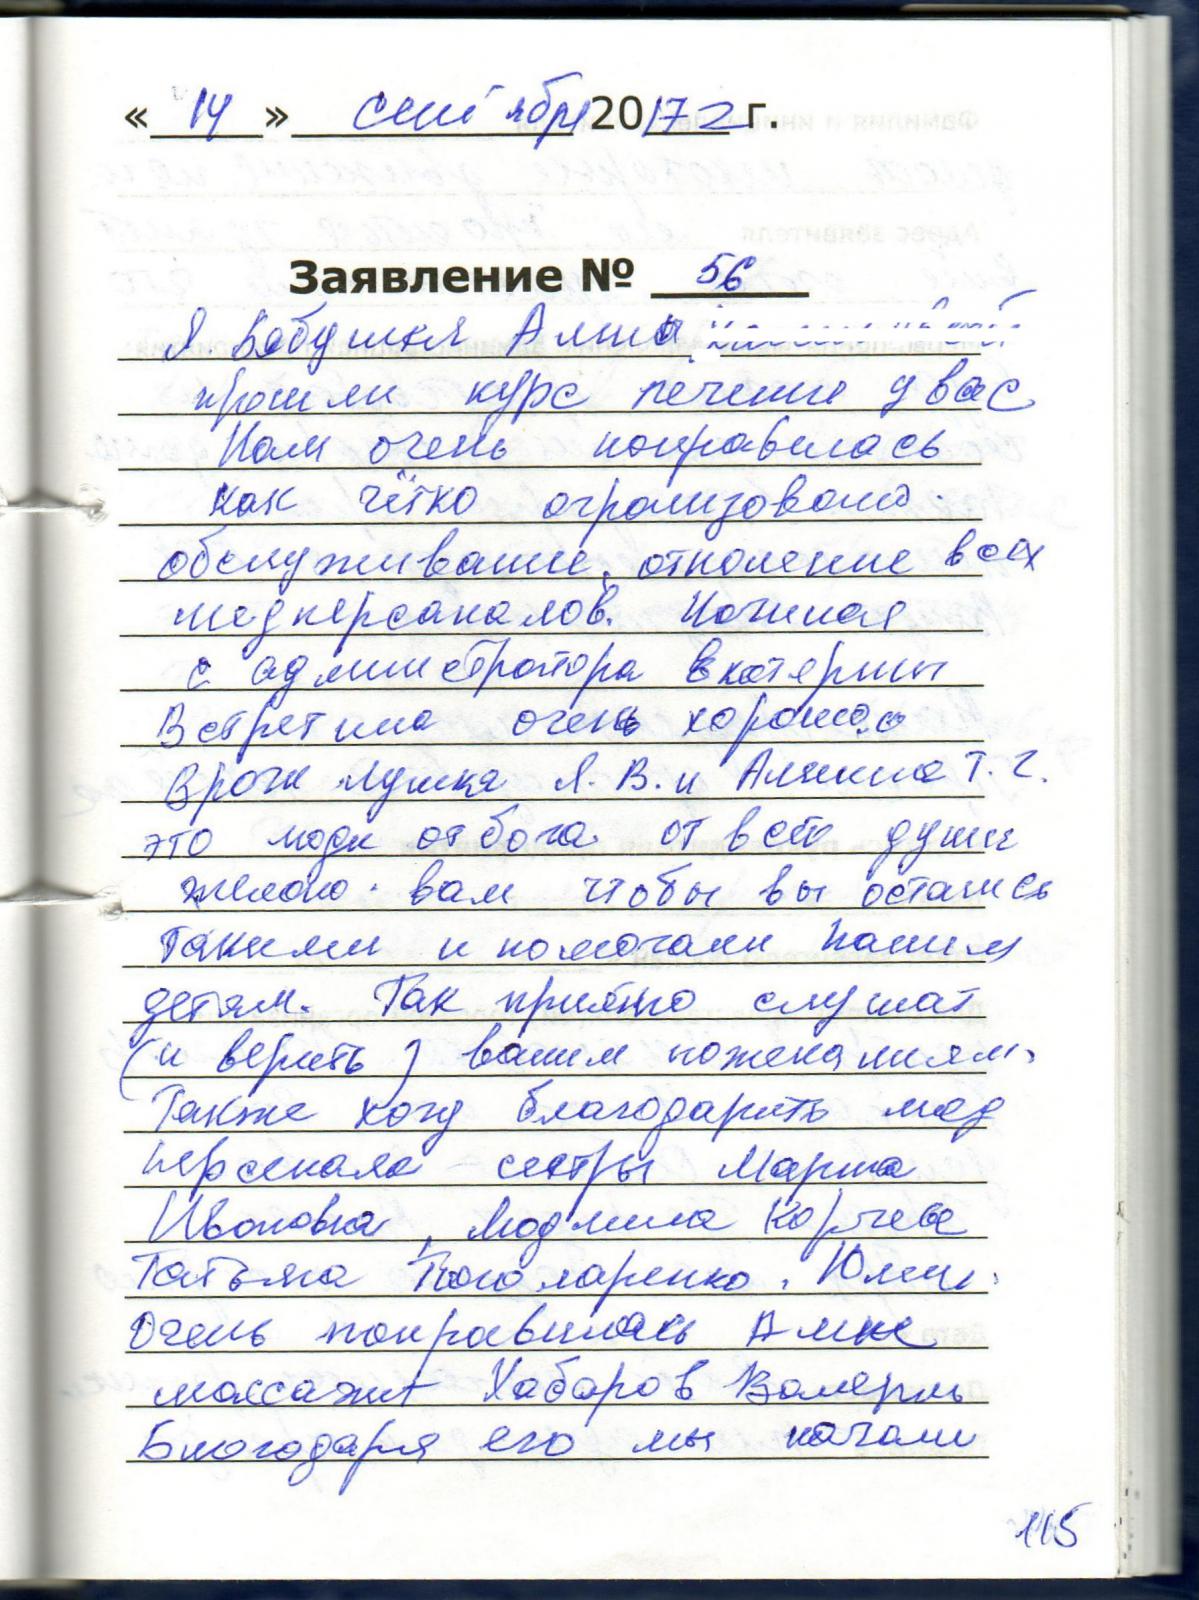 « 14 » сентября 20172 г.
Заявление № 56
Я. Бабушка Алина
прошли курс лечение у вас
Нам очень понравилась
как чётко огранизовано.
обслуживание, отношение всех
медперсаналов. Начиная
с администратора Екатерины
Встретила очень хорошо
Врачи Лушка Л. В. и Аликина Т. Г.
это люди от бога от всей души
желаю вам чтобы вы остались
Такими и помогали нашим
детям. Так приятно слушат
(и верить) вашим поженаниям.
Также хочу благодарить мед
персонала - сестры Марина
Ивановна, Людмила Корчева
Татьяна Понамаренко, Юлии.
Очень понравилась Алине
массажит Хабаров Валерий
Благодаря его мы начали
115